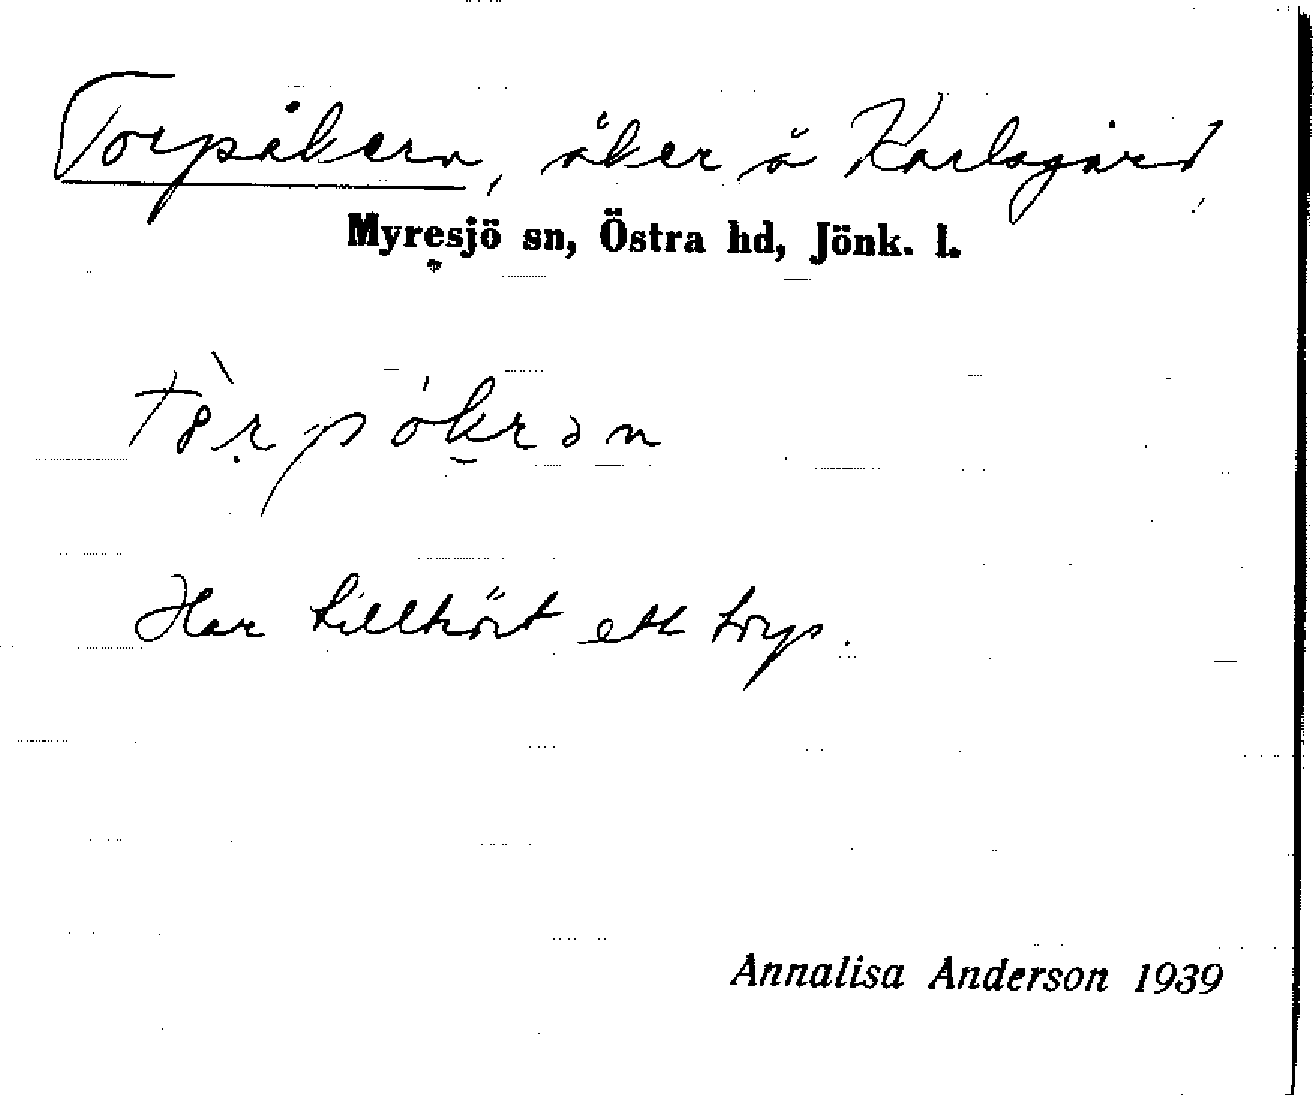 Torpåkern, åker å Karlsgård,
Myresjö sn, Östra hd, Jönk. l.
tòrpókrən
Har tillhört ett torp.
Annalisa Anderson 1939